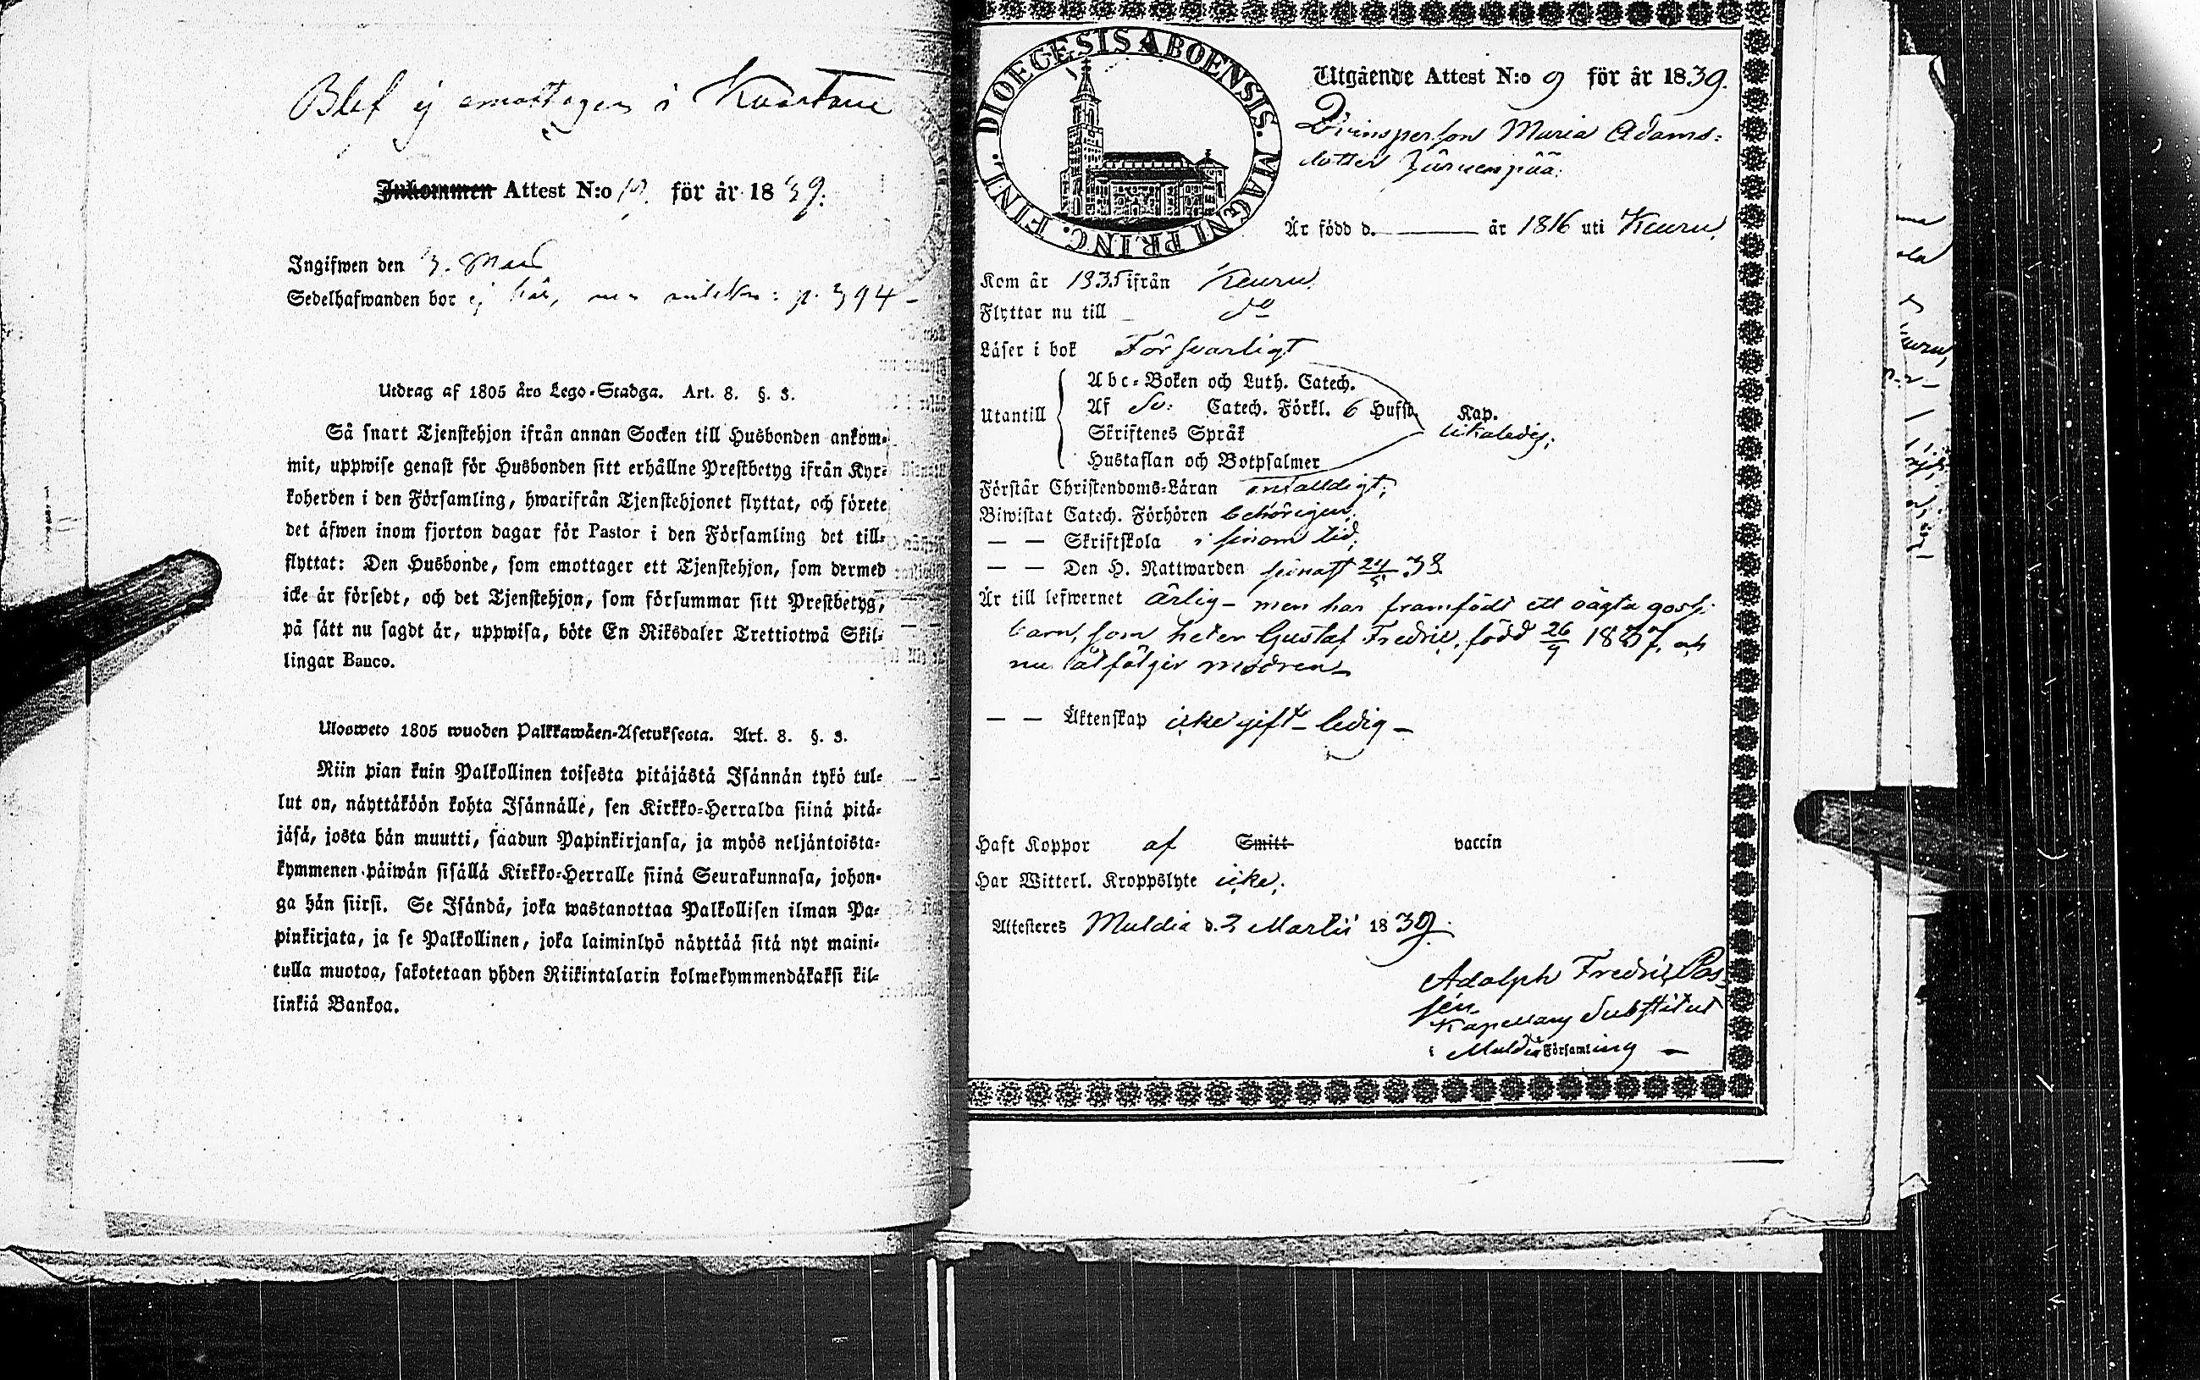 Blef ej emottagen i Kuortane
Inkommen Attest N:o för år 1839.
Ingifwen den 3. Maii
Sedelhafwanden bor ej här, p. 394 -
Utdrag af 1805 års Lego-Stadga. Art. 8. §. 3.
Så snart Tjenstehjon ifrån annan Socken till Husbonden ankom-
mit, uppwise genast för Husbonden sitt erhållne Prestbetyg ifrån Kyr-
koherden i den Församling, hwarifrån Tjenstehjonet flyttat, och förete
det äfwen inom fjorton dagar för Pastor i den Församling det till-
flyttat: Den Husbonde, som emottager ett Tjenstehjon, som dermed
icke är försedt, och det Tjenstehjon, som försummar sitt Prestbetyg,
på sätt nu sagdt är, uppwisa, böte En Riksdaler Trettiotwå Skil-
lingar Banco.
Ulosweto 1805 wuoden Palkkawäen-Asetuksesta. Art. 8. §. 3.
Niin pian kuin Palkollinen toisesta pitäjästä Isännän tykö tul-
lut on, näyttäköön kohta Isännälle, sen Kirkko-Herralda siinä pitä-
jäsä, josta hän muutti, saadun Papinkirjansa, ja myös neljäntoista-
kymmenen päiwän sisällä Kirkko-Herralle siinä Seurakunnasa, johon-
ga hän siirsi. Se Isändä, joka wastanottaa Palkollisen ilman Pa-
pinkirjata, ja se Palkollinen, joka laiminlyö näyttää sitä nyt maini-
tulla muotoa, sakotetaan yhden Riikintalarin kolmekymmendäkaksi kil-
linkiä Bankoa.
DIOECESIS ABOENSIS. MAGNI PRINC. FINL.
Utgående Attest N:o 9 för år 1839.
Qvinsperson Maria Adams-
dotter Järvenpää.
Är född d. ——— år 1816 uti Keuru.
Kom år 1835 ifrån Keuru.
Flyttar nu till – do
Läser i bok Försvarligt
Abc-Boken och Luth. Catech.
Utantill Af Sv: Catech. Förkl. 6 Hufst. Kap.
Skriftenes Språk likaledes.
Hustaflan och Botpsalmer
Förstår Christendoms-Läran enfalldigt.
Biwistat Catech. Förhören behörigen.
— — Skriftskola i sinom tid.
— — Den H. Nattwarden senast 24/5 38.
Är till lefwernet ärlig - men har framfödt ett oägta goss-
barn, som heter Gustaf Fredric, född 26/9 1837, och
nu åtföljer modren -
— — Äktenskap icke gift - ledig -
Haft Koppor af Smitt vaccin
Har Witterl. Kroppslyte icke.
Attesteres Muldia d. 2 Martii 1839.
Adolph Fredric Pas-
sén.
Kapellans Substitut
i Muldia Församling -